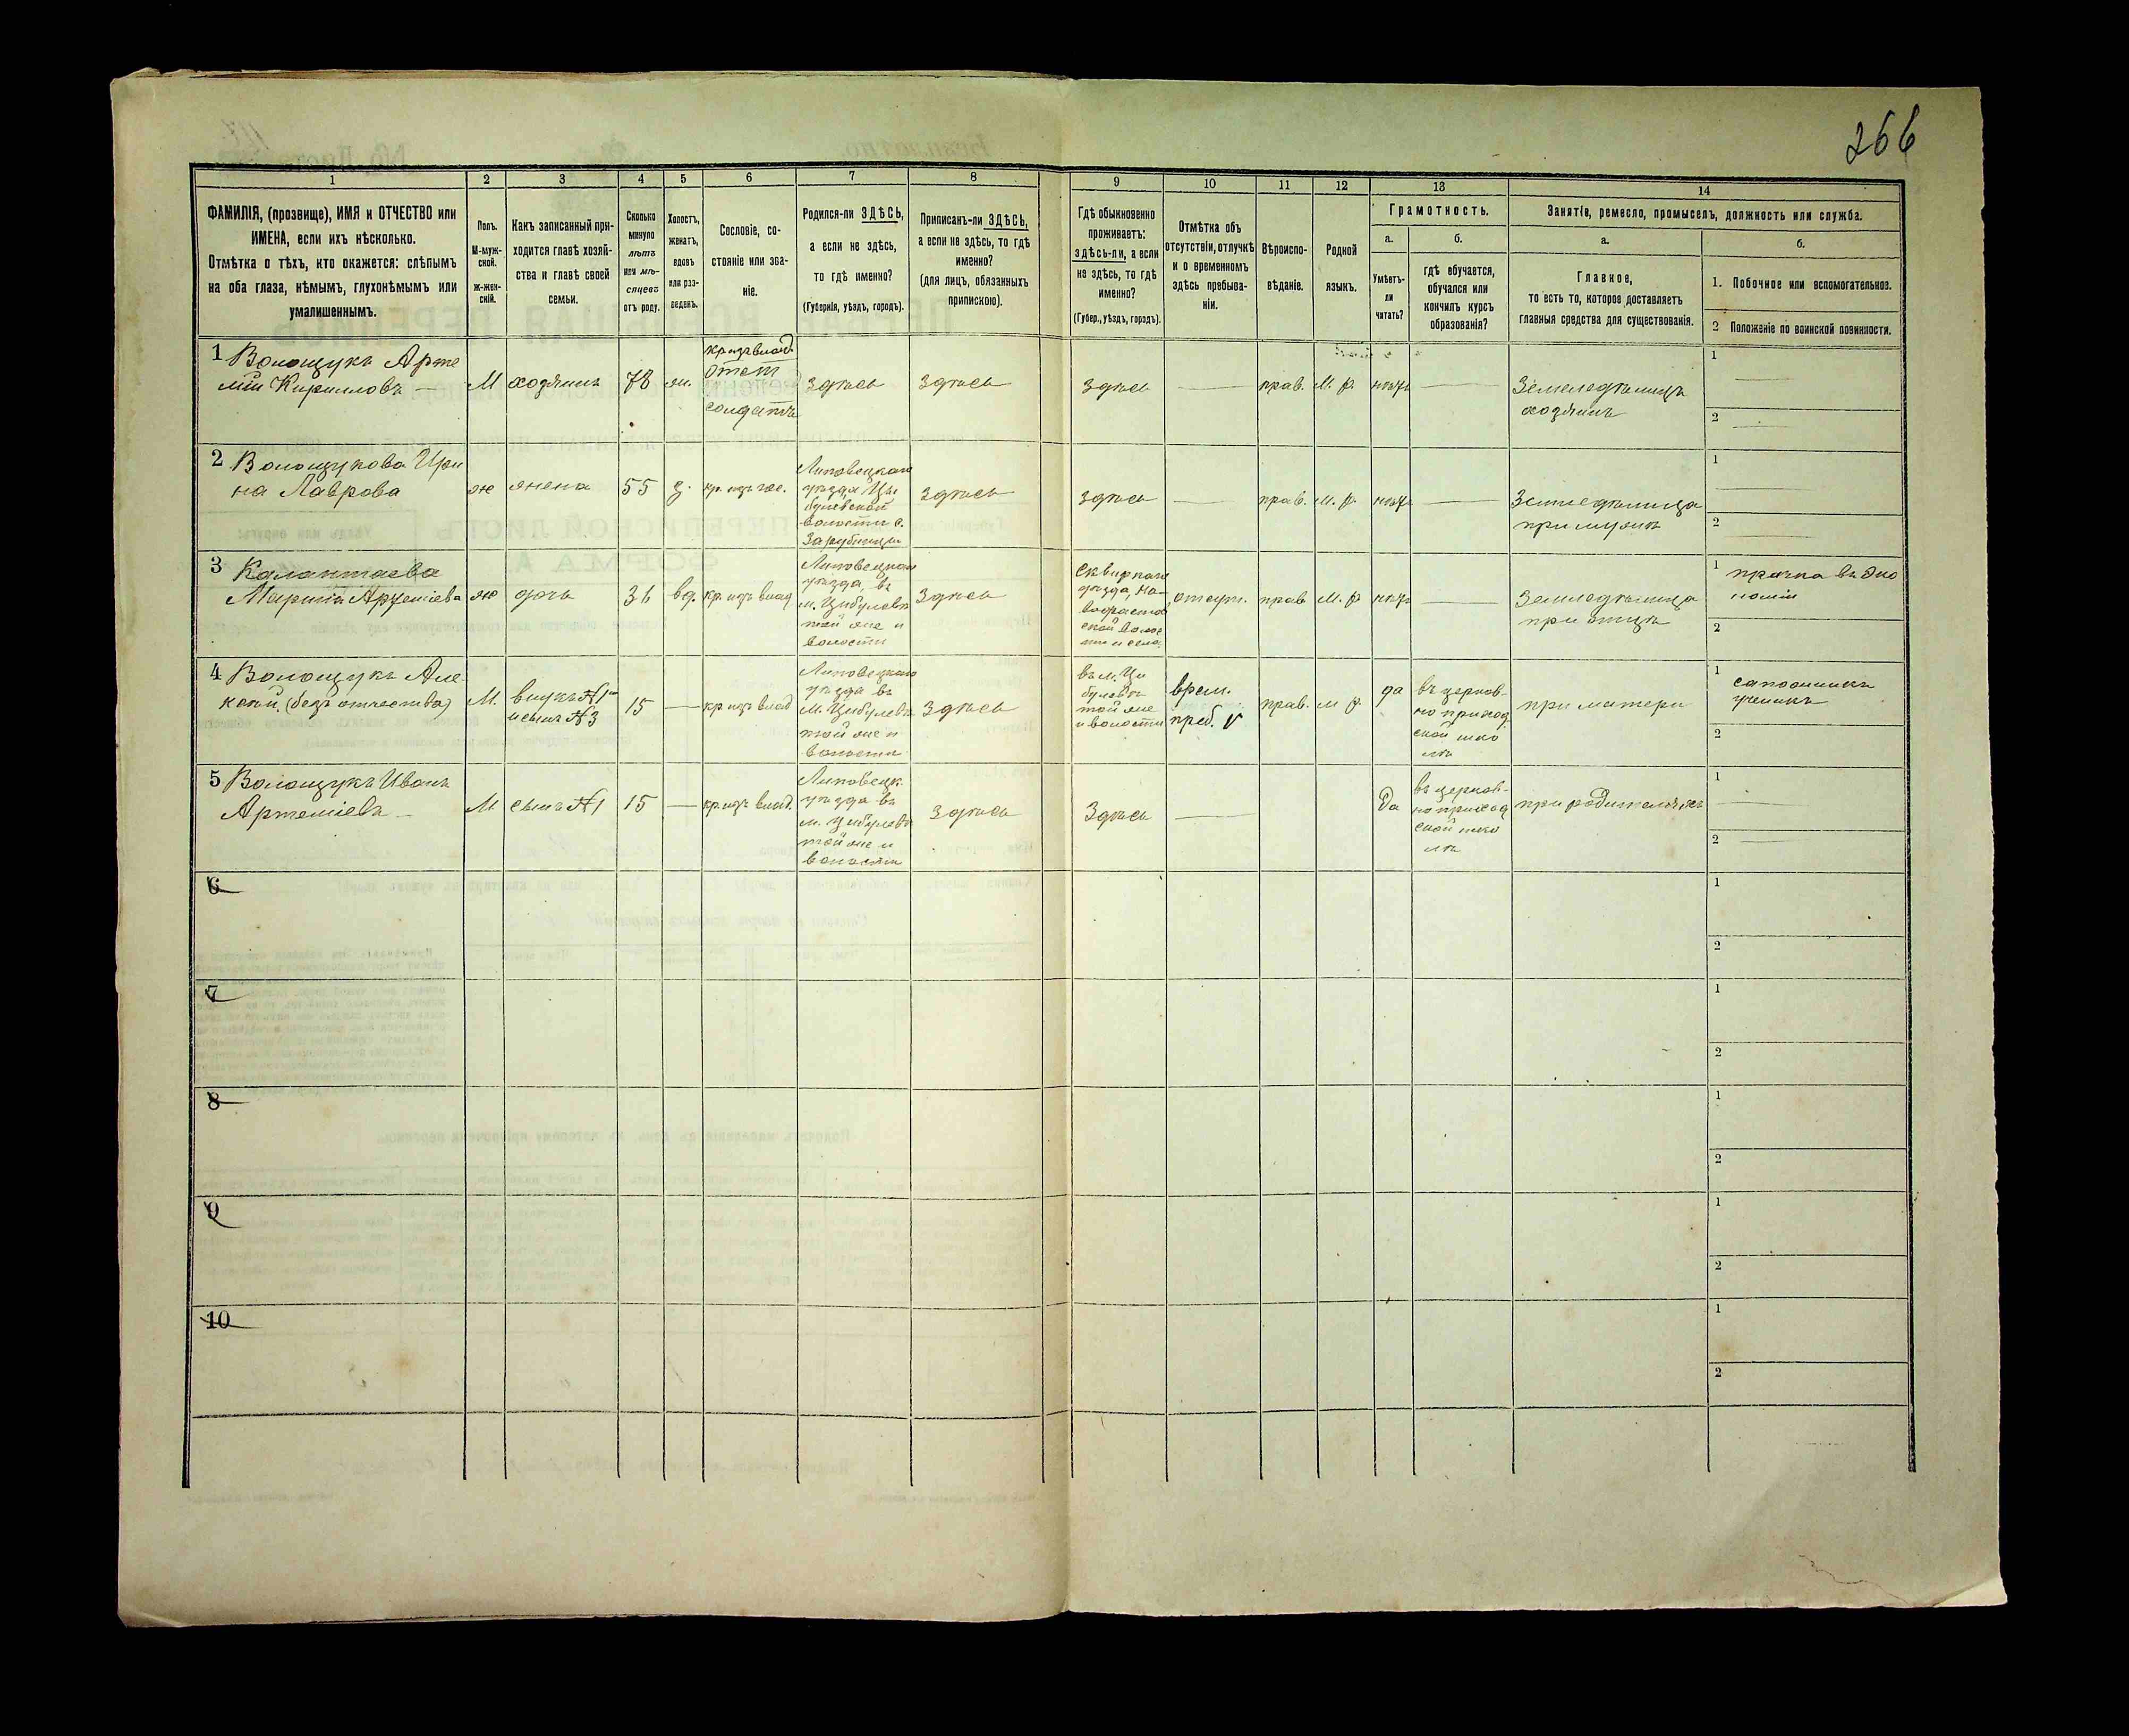 266
1
2
3
4
5
6
7
8
9
10
11
12
13
14
ФАМИЛІЯ, (прозвище), ИМЯ и ОТЧЕСТВО или
ИМЕНА, если ихъ нѣсколько.
Отмѣтка о тѣхъ, кто окажется: слѣпымъ
на оба глаза, нѣмымъ, глухонѣмымъ или
умалишеннымъ.
Полъ.
М-муж-
ской.
ж-жен-
скій.
Какъ записанный при-
ходится главѣ хозяй-
ства и главѣ своей
семьи.
Сколько
минуло
лѣтъ
или мѣ-
сяцевъ
отъ роду.
Холостъ,
женатъ,
вдовъ
или раз-
веденъ.
Сословіе, со-
стояніе или зва-
ніе.
Родился-ли ЗДѢСЬ,
а если не здѣсь,
то гдѣ именно?
(Губернія, уѣздъ, городъ).
Приписанъ-ли ЗДѢСЬ,
а если не здѣсь, то гдѣ
именно?
(для лицъ, обязанныхъ
припискою).
Гдѣ обыкновенно
проживаетъ:
здѣсь-ли, а если
не здѣсь, то гдѣ
именно?
(Губер., уѣздъ, городъ).
Отмѣтка объ
отсутствіи, отлучкѣ
и о временномъ
здѣсь пребыва-
ніи.
Вѣроиспо-
вѣданіе.
Родной
языкъ.
Грамотность.
а.
б.
Умѣетъ-
ли
читать?
гдѣ обучается,
обучался или
кончилъ курсъ
образованія?
Занятіе, ремесло, промыселъ, должность или служба.
а.
б.
Главное,
то есть то, которое доставляетъ
главныя средства для существованія.
1. Побочное или вспомогательное.
2 Положеніе по воинской повинности.
1 Волощукъ Арте
мій Кирилловъ —
М
хозяинъ
78
ж.
кр. изъ влад.
отст
солдатъ
здѣсь
здѣсь
здѣсь
—
прав.
М. р.
нѣтъ
—
Земледѣлецъ
хозяинъ
1
—
2
—
2 Волощукова Ири
на Лаврова
ж
жена
55
з.
кр. изъ
Липовецкаго
уѣзда Цы
булевской
волости с.
Зарубинцы
здѣсь
здѣсь
—
прав.
М. р.
нѣтъ
—
Земледѣлица
при мужѣ
1
—
2
—
3 Калантаева
Марина Артеміева
ж
дочь
36
вд.
кр. изъ влад
Липовецкаго
уѣзда, въ
м. Цибулевѣ
той же и
волости
здѣсь
Сквирскаго
уѣзда,
отсут.
прав
М. р
нѣтъ
—
Земледѣлица
при отцѣ
1 прачка въ эко
номіи
2
4 Волощукъ Але
ксѣй, (безъ отчества)
М.
внукъ №1
и сынъ №3
15
—
кр. изъ влад
Липовецкаго
уѣзда въ
м. Цибулевѣ
той же и
волости
здѣсь
въ м. Ци
булевѣ
той же
и волости
врем.
преб. V
прав.
м р.
да
въ церков-
но приход
ской шко
лѣ
при матери
1 сапожникъ
ученикъ
2
5 Волощукъ Иванъ
Артеміевъ —
М
сынъ №1
15
—
кр. изъ влад.
Липовецк.
уѣзда въ
м. Цибулевѣ
той же и
волости
здѣсь
Здѣсь
—
Да
въ церков-
но приход
ской шко
лѣ
при родителяхъ
1
—
2
—
6
1
2
7
1
2
8
1
2
9
1
2
10
1
2